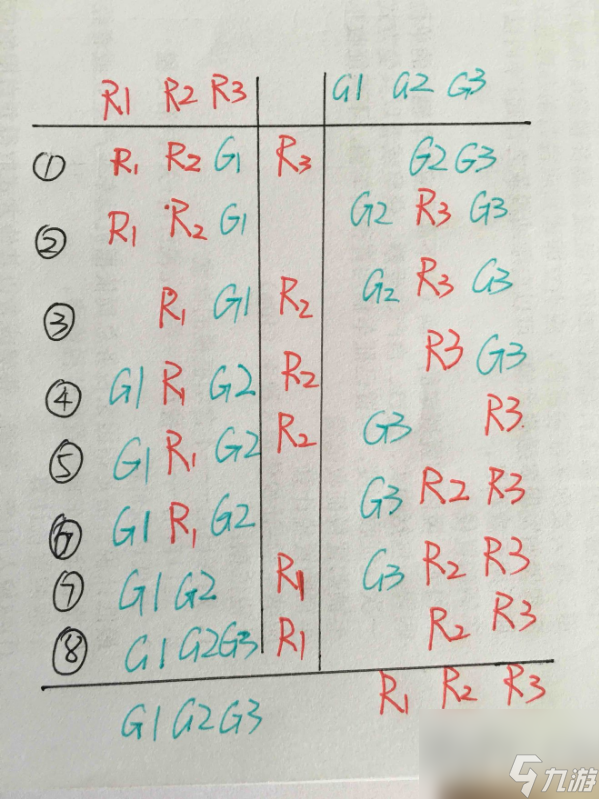 R1 R2 R3 G1 G2 G3
① R1 R2 G1 R3 G2 G3
② R1 R2 G1 G2 R3 G3
③ R1 G1 R2 G2 R3 G3
④ G1 R1 G2 R2 R3 G3
⑤ G1 R1 G2 R2 G3 R3
⑥ G1 R1 G2 G3 R2 R3
⑦ G1 G2 R1 G3 R2 R3
⑧ G1 G2 G3 R1 R2 R3
G1 G2 G3 R1 R2 R3
九游